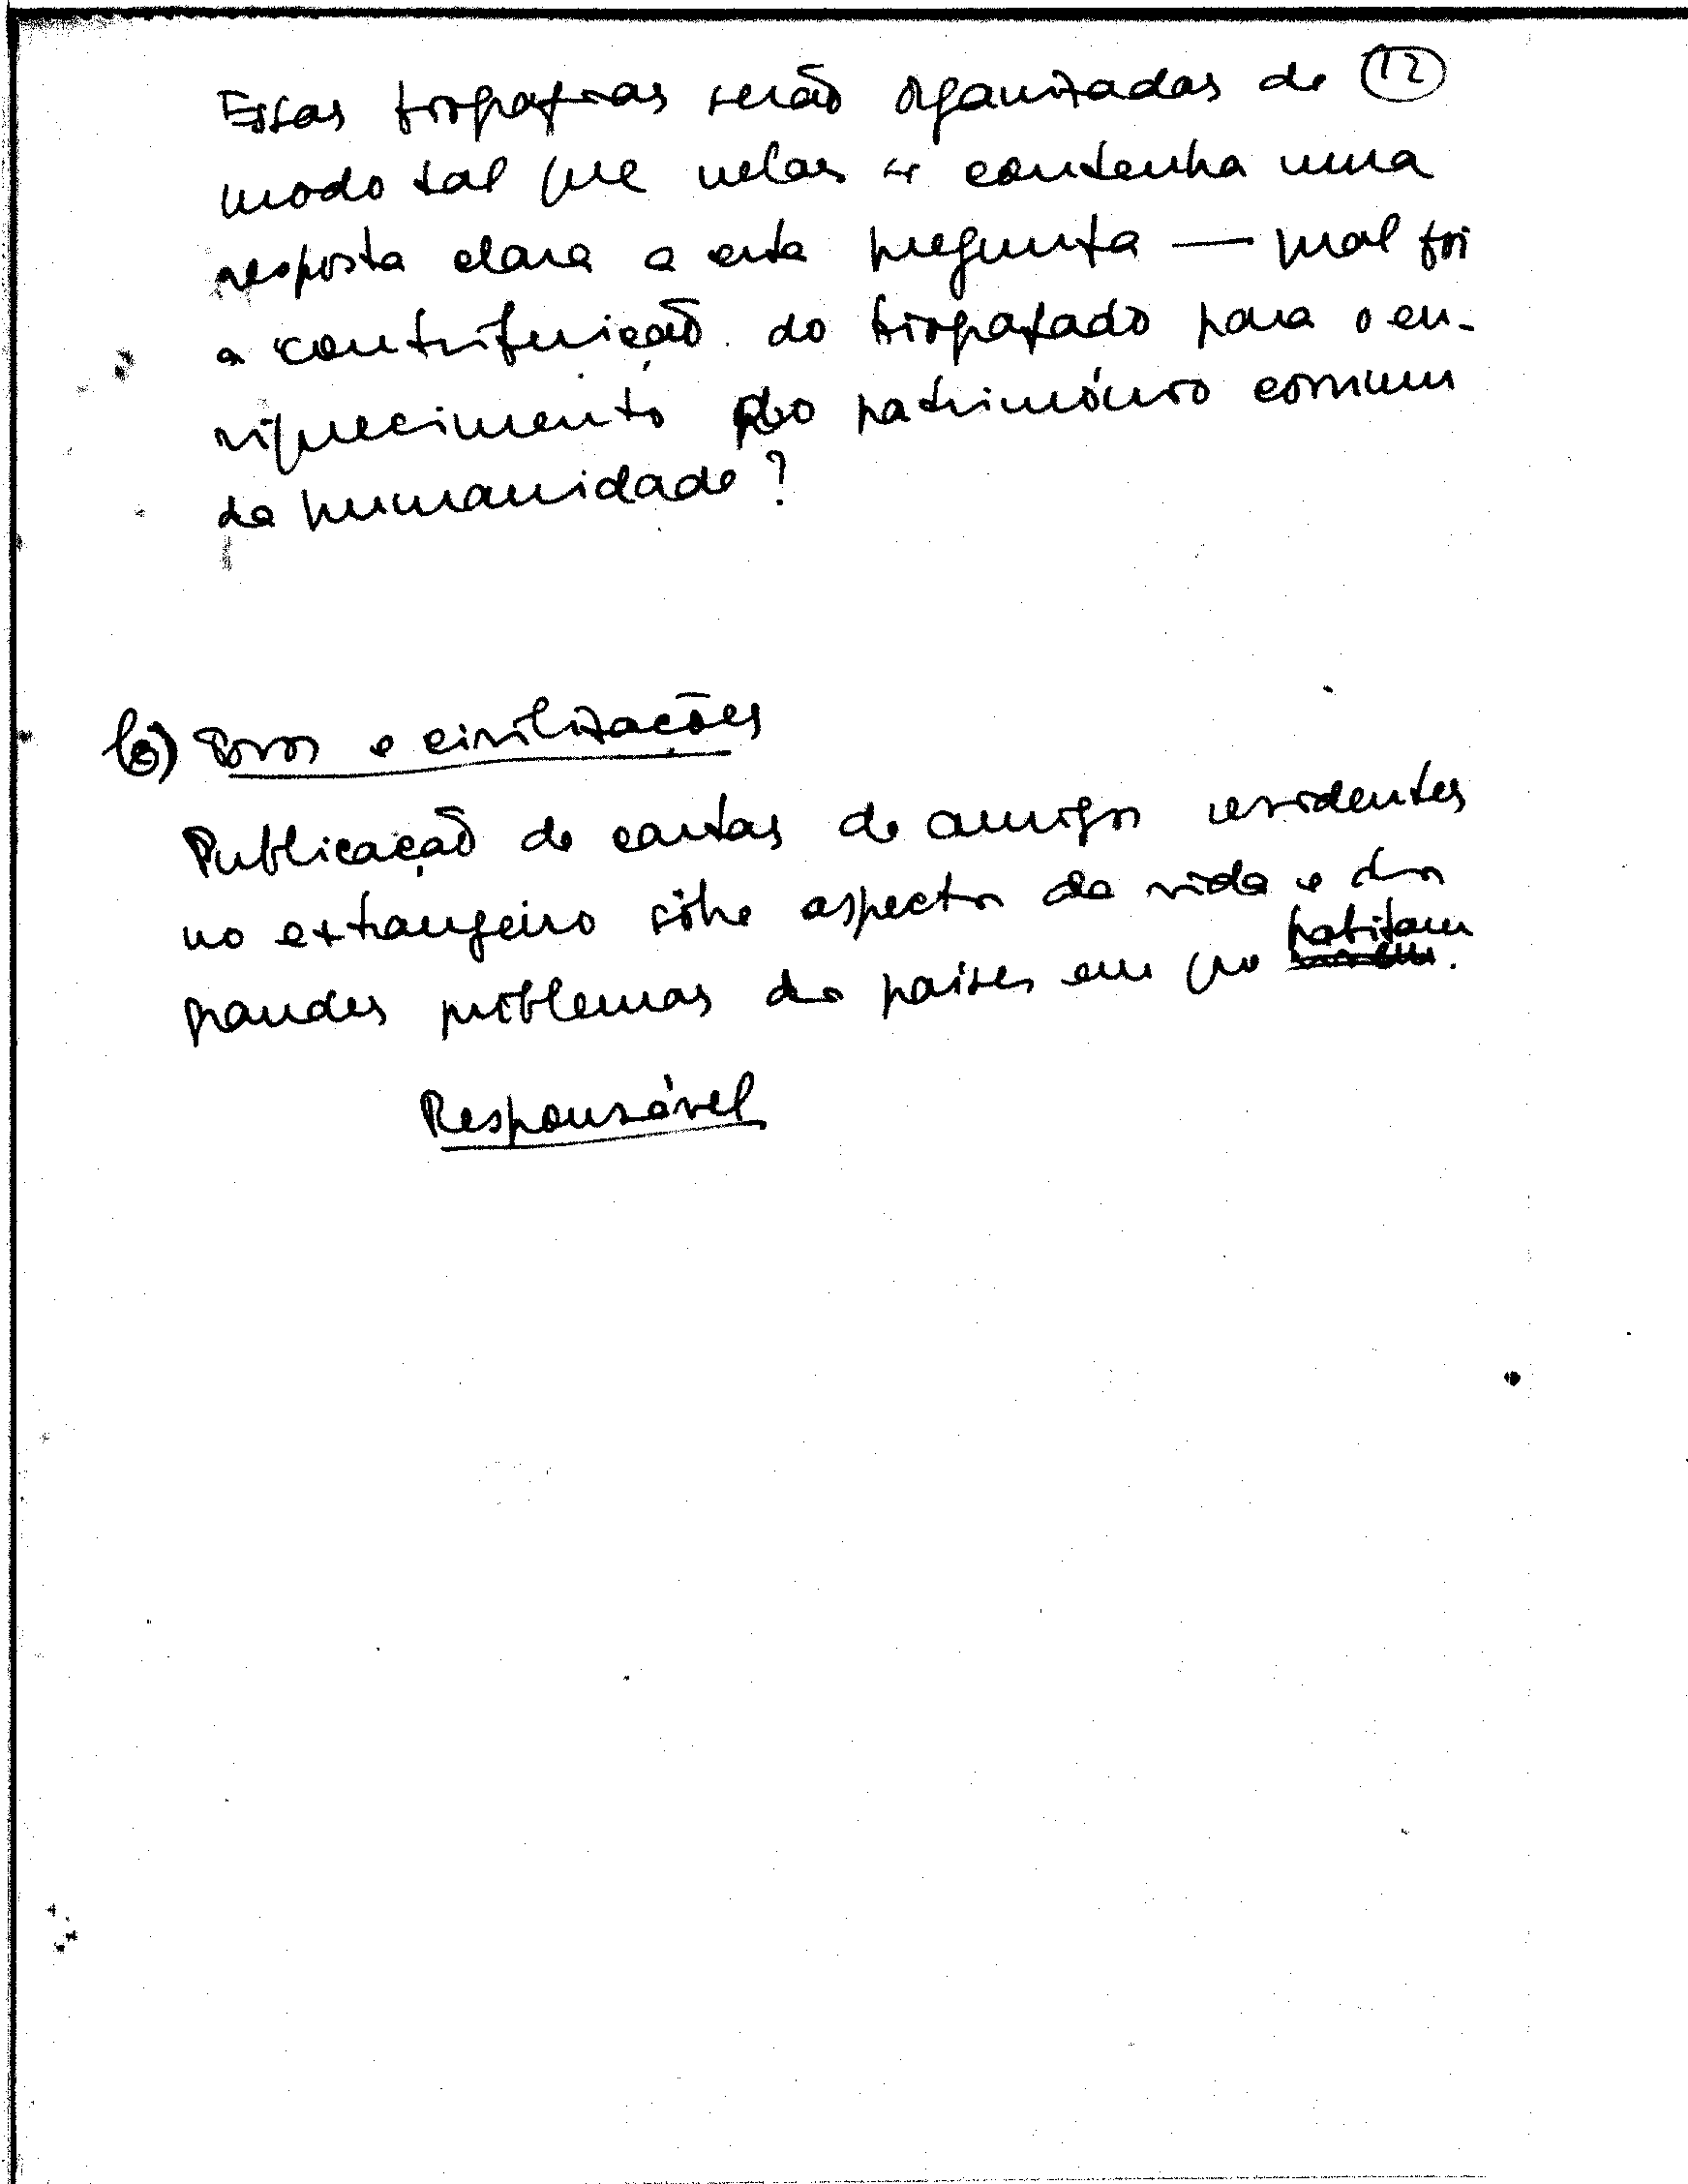 Essas biografias serão organizadas de 12
modo tal que nelas se contenha uma
resposta clara a esta pergunta — qual foi
a contribuição do biografado para o en-
riquecimento do património comum
da humanidade?
b) Povos e civilizações
Publicação de cartas de amigos residentes
no extrangeiro sôbre aspectos da vida e dos
grandes problemas dos países em que habitam.
Responsável